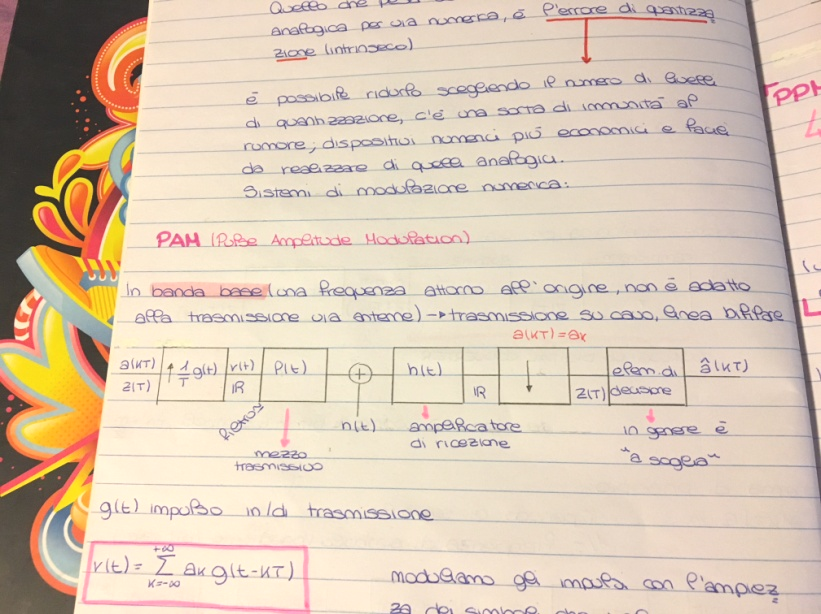 Quello che
analogica per via numerica, è l'errore di quantizza
zione (intrinseco)
è possibile ridurlo scegliendo il numero di livelli
di quantizzazione, c'è una sorta di immunità al
rumore; dispositivi numerici più economici e facili
da realizzare di quelli analogici.
Sistemi di modulazione numerica:
PAM (Pulse Amplitude Modulation)
In banda base (una frequenza attorno all'origine, non è adatto
alla trasmissione via antenne) → trasmissione su cavo, linea bifilare
a(KT)=aK
a(KT) ↑ 1/T g(t) v(t) P(t) + h(t) ↓ elem. di â(KT)
Z(T) IR IR Z(T) decisore
n(t) amplificatore in genere è
di ricezione "a soglia"
mezzo
trasmissivo
g(t) impulso in/di trasmissione
v(t) = Σ aK g(t-KT)
+∞
K=-∞
moduliamo gli impulsi con l'ampiez
za dei simboli che
PPM